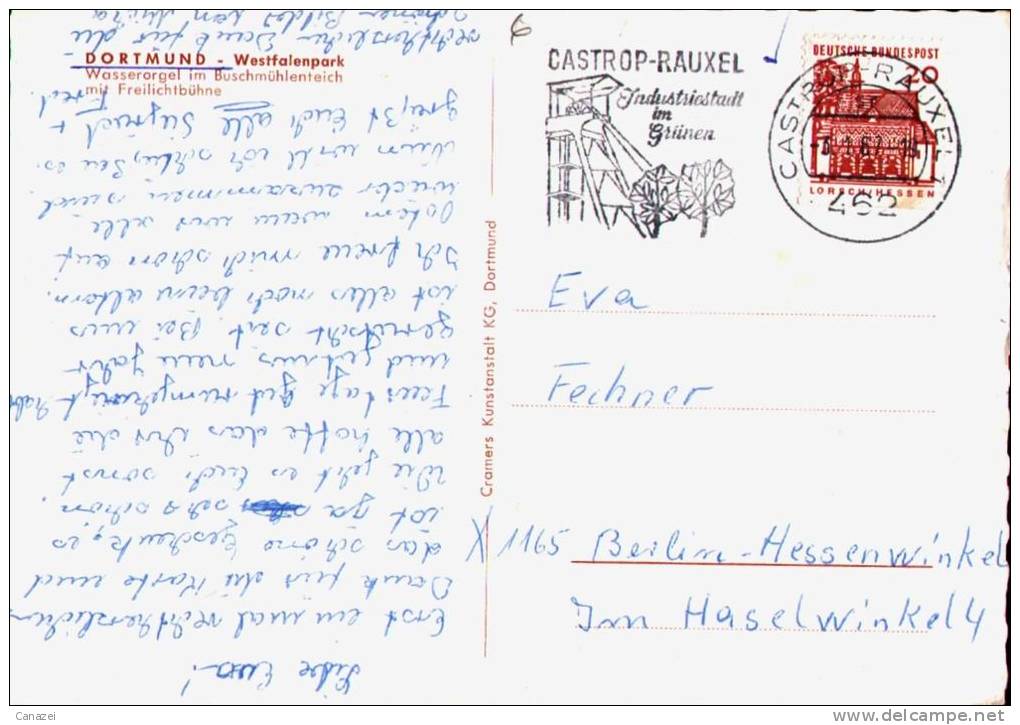 DORTMUND - Westfalenpark
Wasserorgel im Buschmühlenteich
mit Freilichtbühne
CASTROP-RAUXEL
Industriestadt
im
Grünen
DEUTSCHE BUNDESPOST
20
LORSCH/HESSEN
CASTROP-RAUXEL 1
462
Cramers Kunstanstalt KG, Dortmund
Eva
Fechner
X 1165 Berlin-Hessenwinkel
Im Haselwinkel 4
Liebe Eva!
Erst ein mal recht herzlichen
Dank für die Karte und
das schöne Geschenk, es
ist ja sehr schön.
Wie geht es Euch sonst
alle hoffe das Ihr die
Feiertage gut rumgekriegt habt
und ins neue Jahr
gerutscht seit. Bei uns
ist alles noch beim altem.
Ich freue mich schon auf
Ostern wenn wir alle
wieder zusammen sind
Nun will ich schließen es
grüßt Euch alle Siegfried +
recht herzlichen Dank für die
schönen Bilder von